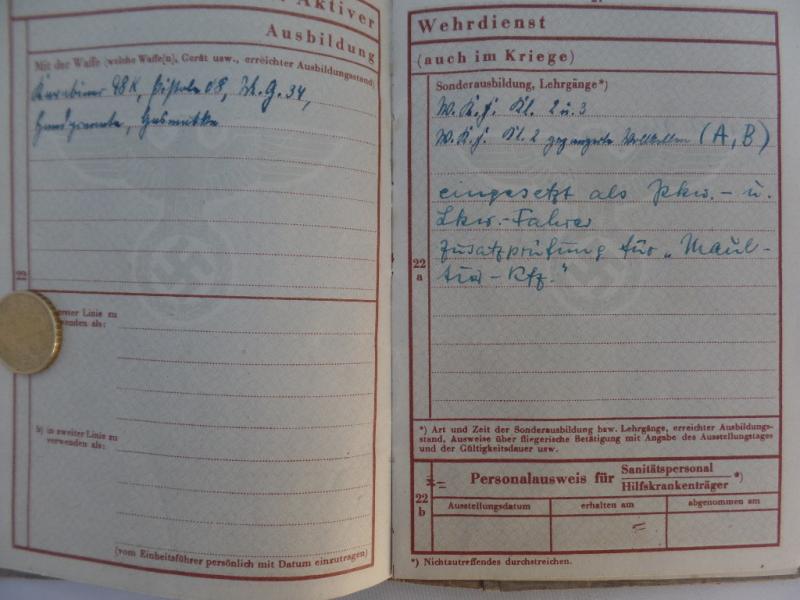 Aktiver
Ausbildung
Mit der Waffe (welche Waffe[n], Gerät usw., erreichter Ausbildungsstand)
Karabiner 98K, Pistole 08, M.G. 34,
Handgranate, Gasmaske
22
erster Linie zu
wenden als:
b) in zweiter Linie zu
verwenden als:
(vom Einheitsführer persönlich mit Datum einzutragen)
Wehrdienst
(auch im Kriege)
Sonderausbildung, Lehrgänge*)
W.K.f. Kl. 2 u. 3
W.K.f. Kl. 2 (A, B)
eingesetzt als Pkw.- u.
Lkw.-Fahrer
Zusatzprüfung für „Maul-
tier-Kfz."
22
a
*) Art und Zeit der Sonderausbildung bzw. Lehrgänge, erreichter Ausbildungs-
stand, Ausweise über fliegerische Betätigung mit Angabe des Ausstellungstages
und der Gültigkeitsdauer usw.
22
b
Personalausweis für Sanitätspersonal *)
Hilfskrankenträger
Ausstellungsdatum erhalten am abgenommen am
*) Nichtzutreffendes durchstreichen.